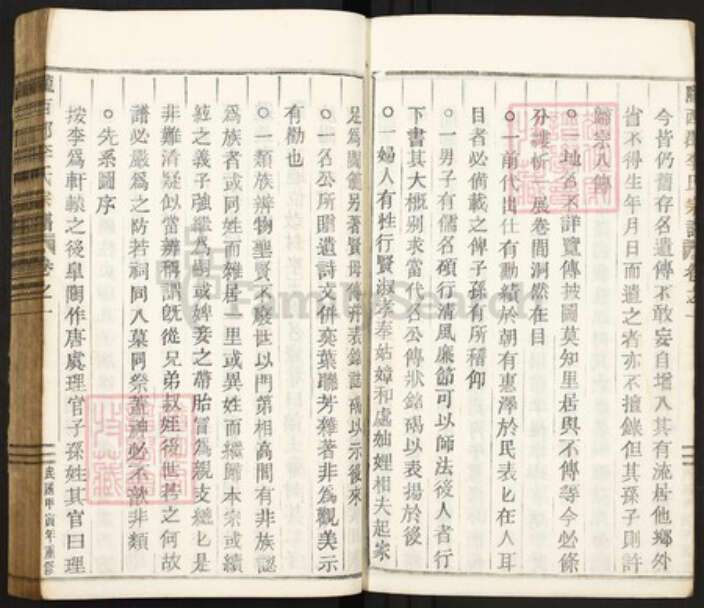 今皆仍舊存名遺傳不敢妄自增入其有流居他鄉外
省不得生年月日而遺之者亦不擅錄但其孫子則許
歸宗入傳
○一地名不詳覽傳披圖莫知里居與不傳等今必條
分縷析展卷間洞然在目
○一前代出仕有勳績於朝有惠澤於民表乚在人耳
目者必備載之俾子孫有所稽仰
○一男子有儒名碩行清風廉節可以師法後人者行
下書其大概別求當代名公傳狀銘碣以表揚於後
○一婦人有性行賢淑孝奉姑嫜和處妯娌相夫起家
足為閨範另著賢母傳并表錄誌碣以示後來
○一名公所贈遺詩文併奕葉聯芳雜著非為觀美示
有勸也
○一類族辨物聖賢不廢世以門第相高間有非族認
為族者或同姓而雜居一里或異姓而繼歸本宗或續
絃之義子強繼為嗣或婢妾之帶胎冒為親支繼乚是
非難清疑似當辨稱謂既從兄弟叔姪後世若之何故
譜必嚴為之防若祠同入墓同祭蓋神必不歆非類
○先系圖序
按李為軒轅之後皋陶作唐虞理官子孫姓其官曰理
隴西郡李氏宗譜
卷之一
民國甲寅年重修
FamilySearch